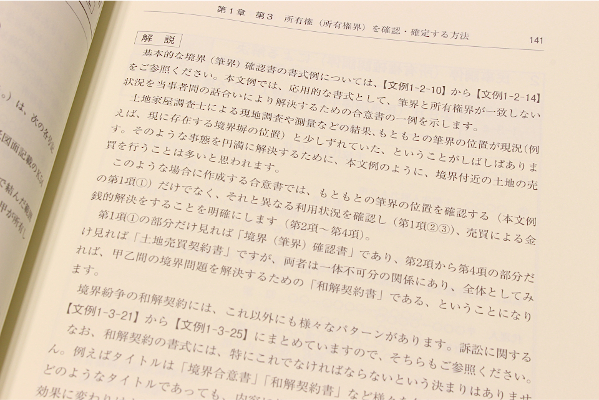 第1章 第3 所有権（所有権界）を確認・確定する方法
141
解説
基本的な境界（筆界）確認書の書式例については、【文例1-2-10】から【文例1-2-14】
をご参照ください。本文例では、応用的な書式として、筆界と所有権界が一致しない
状況を当事者間の話合いにより解決するための合意書の一例を示します。
土地家屋調査士による現地調査や測量などの結果、もともとの筆界の位置が現況（例
えば、現に存在する境界塀の位置）と少しずれていた、ということがしばしばありま
す。そのような事態を円満に解決するために、本文例のように、境界付近の土地の売
買を行うことは多いと思われます。
このような場合に作成する合意書では、もともとの筆界の位置を確認する（本文例
の第1項①）だけでなく、それと異なる利用状況を確認し（第1項②③）、売買による金
銭的解決をすることを明確にします（第2項～第4項）。
第1項①の部分だけ見れば「境界（筆界）確認書」であり、第2項から第4項の部分だ
け見れば「土地売買契約書」ですが、両者は一体不可分の関係にあり、全体としてみ
れば、甲乙間の境界問題を解決するための「和解契約書」である、ということになり
ます。
境界紛争の和解契約には、これ以外にも様々なパターンがあります。訴訟に関する
【文例1-3-21】から【文例1-3-25】にまとめていますので、そちらもご参照ください。
なお、和解契約の書式には、特にこれでなければならないという決まりはありませ
ん。例えばタイトルは「境界合意書」「和解契約書」など様々な
どのようなタイトルであっても、内容に
効果に変わりは
。）は、次の各
図面記載の
で結んだ
甲が所有し